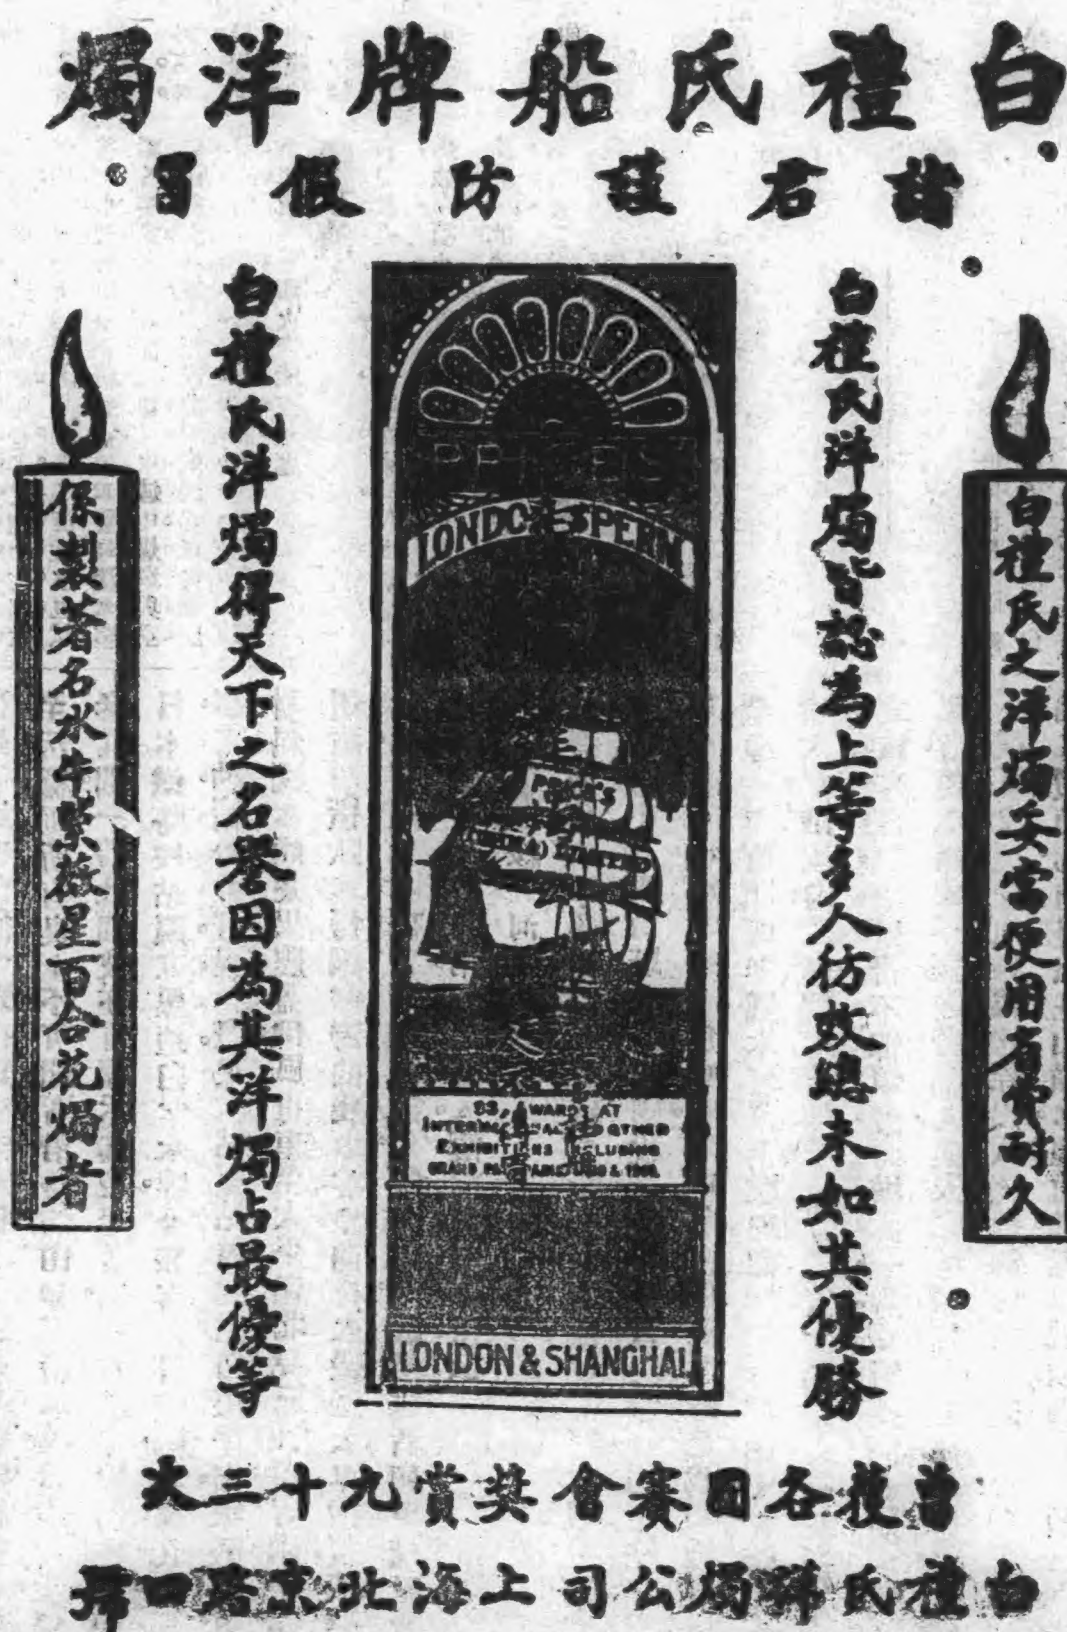 白禮氏船牌洋燭
諸君謹防假冒
白禮氏之洋燭妥當便用省費耐久
白禮氏洋燭皆認為上等多人仿效總未如其優勝
PRICE'S
LONDON SPERM
PRICE'S
(CHINA) LIMITED
93, AWARDS AT
INTERNATIONAL AND OTHER
EXHIBITIONS INCLUDING
GRAND
LONDON & SHANGHAI
白禮氏洋燭得天下之名譽因為其洋燭占最優等
係製著名水牛紫薇星百合花燭者
曾獲各國賽會獎賞九十三次
白禮氏燭公司上海北京路口